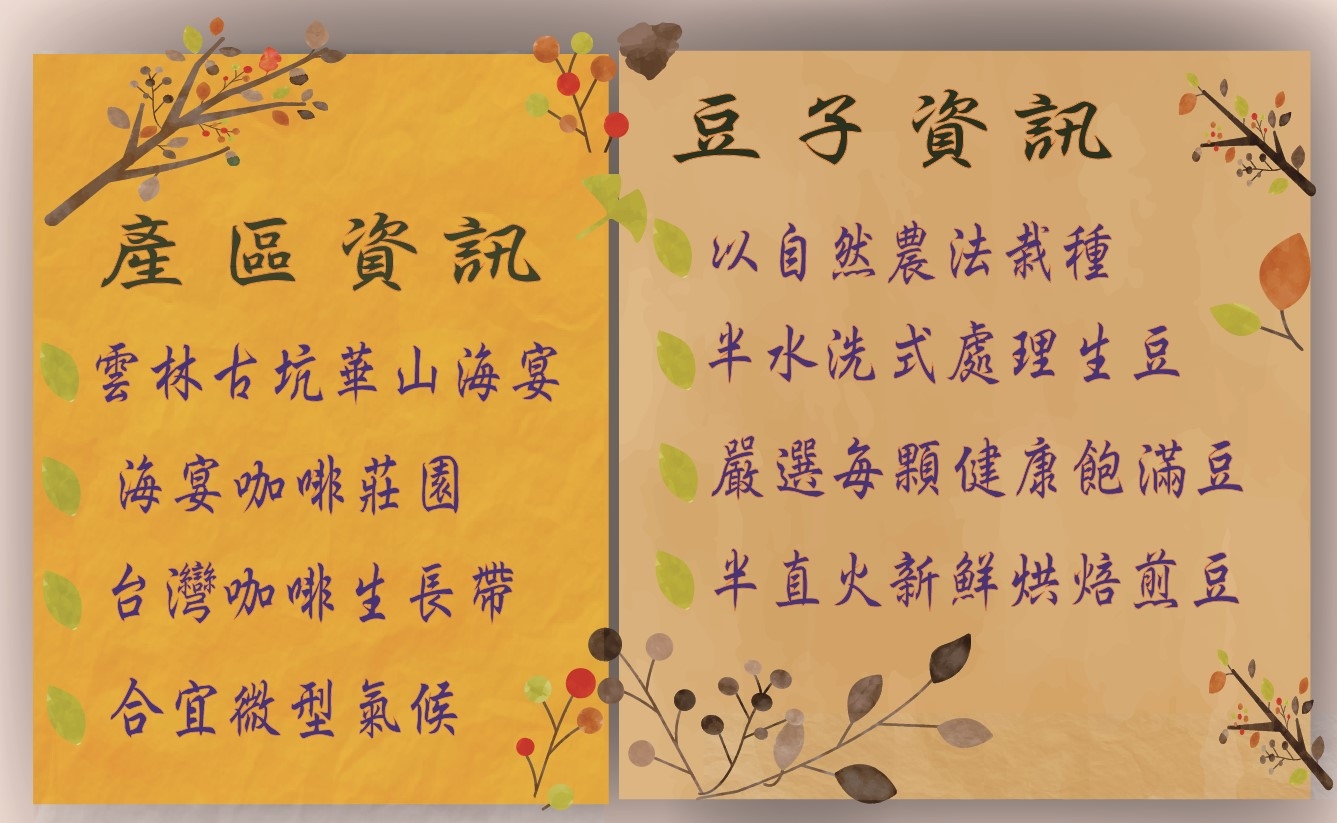 產區資訊
雲林古坑華山海宴
海宴咖啡莊園
台灣咖啡生長帶
合宜微型氣候
豆子資訊
以自然農法栽種
半水洗式處理生豆
嚴選每顆健康飽滿豆
半直火新鮮烘焙煎豆